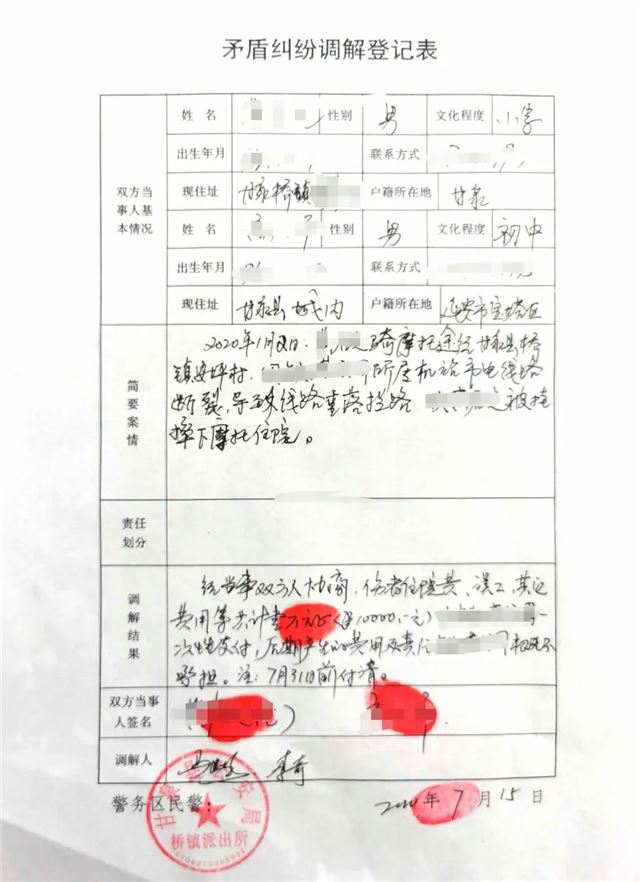 矛盾纠纷调解登记表
双方当事人基本情况
姓 名 性别 男 文化程度 小学
出生年月 联系方式
现住址 甘泉桥镇 户籍所在地 甘泉
姓 名 性别 男 文化程度 初中
出生年月 联系方式
现住址 甘泉县城内 户籍所在地 延安市宝塔区
简要案情
2020年1月2日, 骑摩托途经甘泉县桥
镇安坪村, 所属机站市电线路
断裂,导致线路垂落挡路 被挂
摔下摩托住院。
责任划分
调解结果
经当事双方人协商,伤者住院费、误工、其它
费用等共计壹万元(¥10000.元)
次性支付,后期产生的费用及责任 概不
承担。注:7月31日前付清。
双方当事人签名
调解人 李奇
警务区民警: 2020年7月15日
桥镇派出所